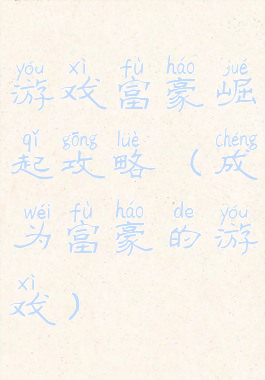 yóu xì fù háo jué
游戏富豪崛
qǐ gōng lüè chéng
起攻略（成
wéi fù háo de yóu
为富豪的游
xì
戏）